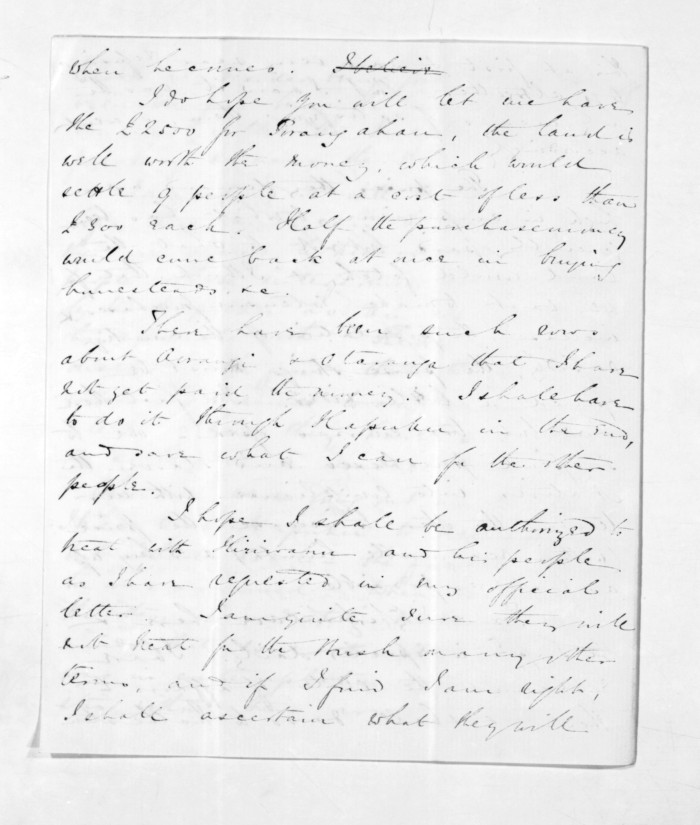 when he comes. I believe
I do hope you will let me have
the £2500 for Porangahau, the land is
well worth the money, which would
settle 9 people at a cost of less than
£300 each. Half the purchase money
would come back at once in buying
homesteads &c
There have been such rows
about Aorangi & Otaranga that I have
not yet paid the money. I shall have
to do it through Hapuku in the end,
and save what I can for the other
people.
I hope I shall be authorized to
treat with Hiriwanu and his people
as I have requested in my official
letter. I am quite sure they will
not treat for the Bush on any other
terms, and if I find I am right,
I shall ascertain what they will